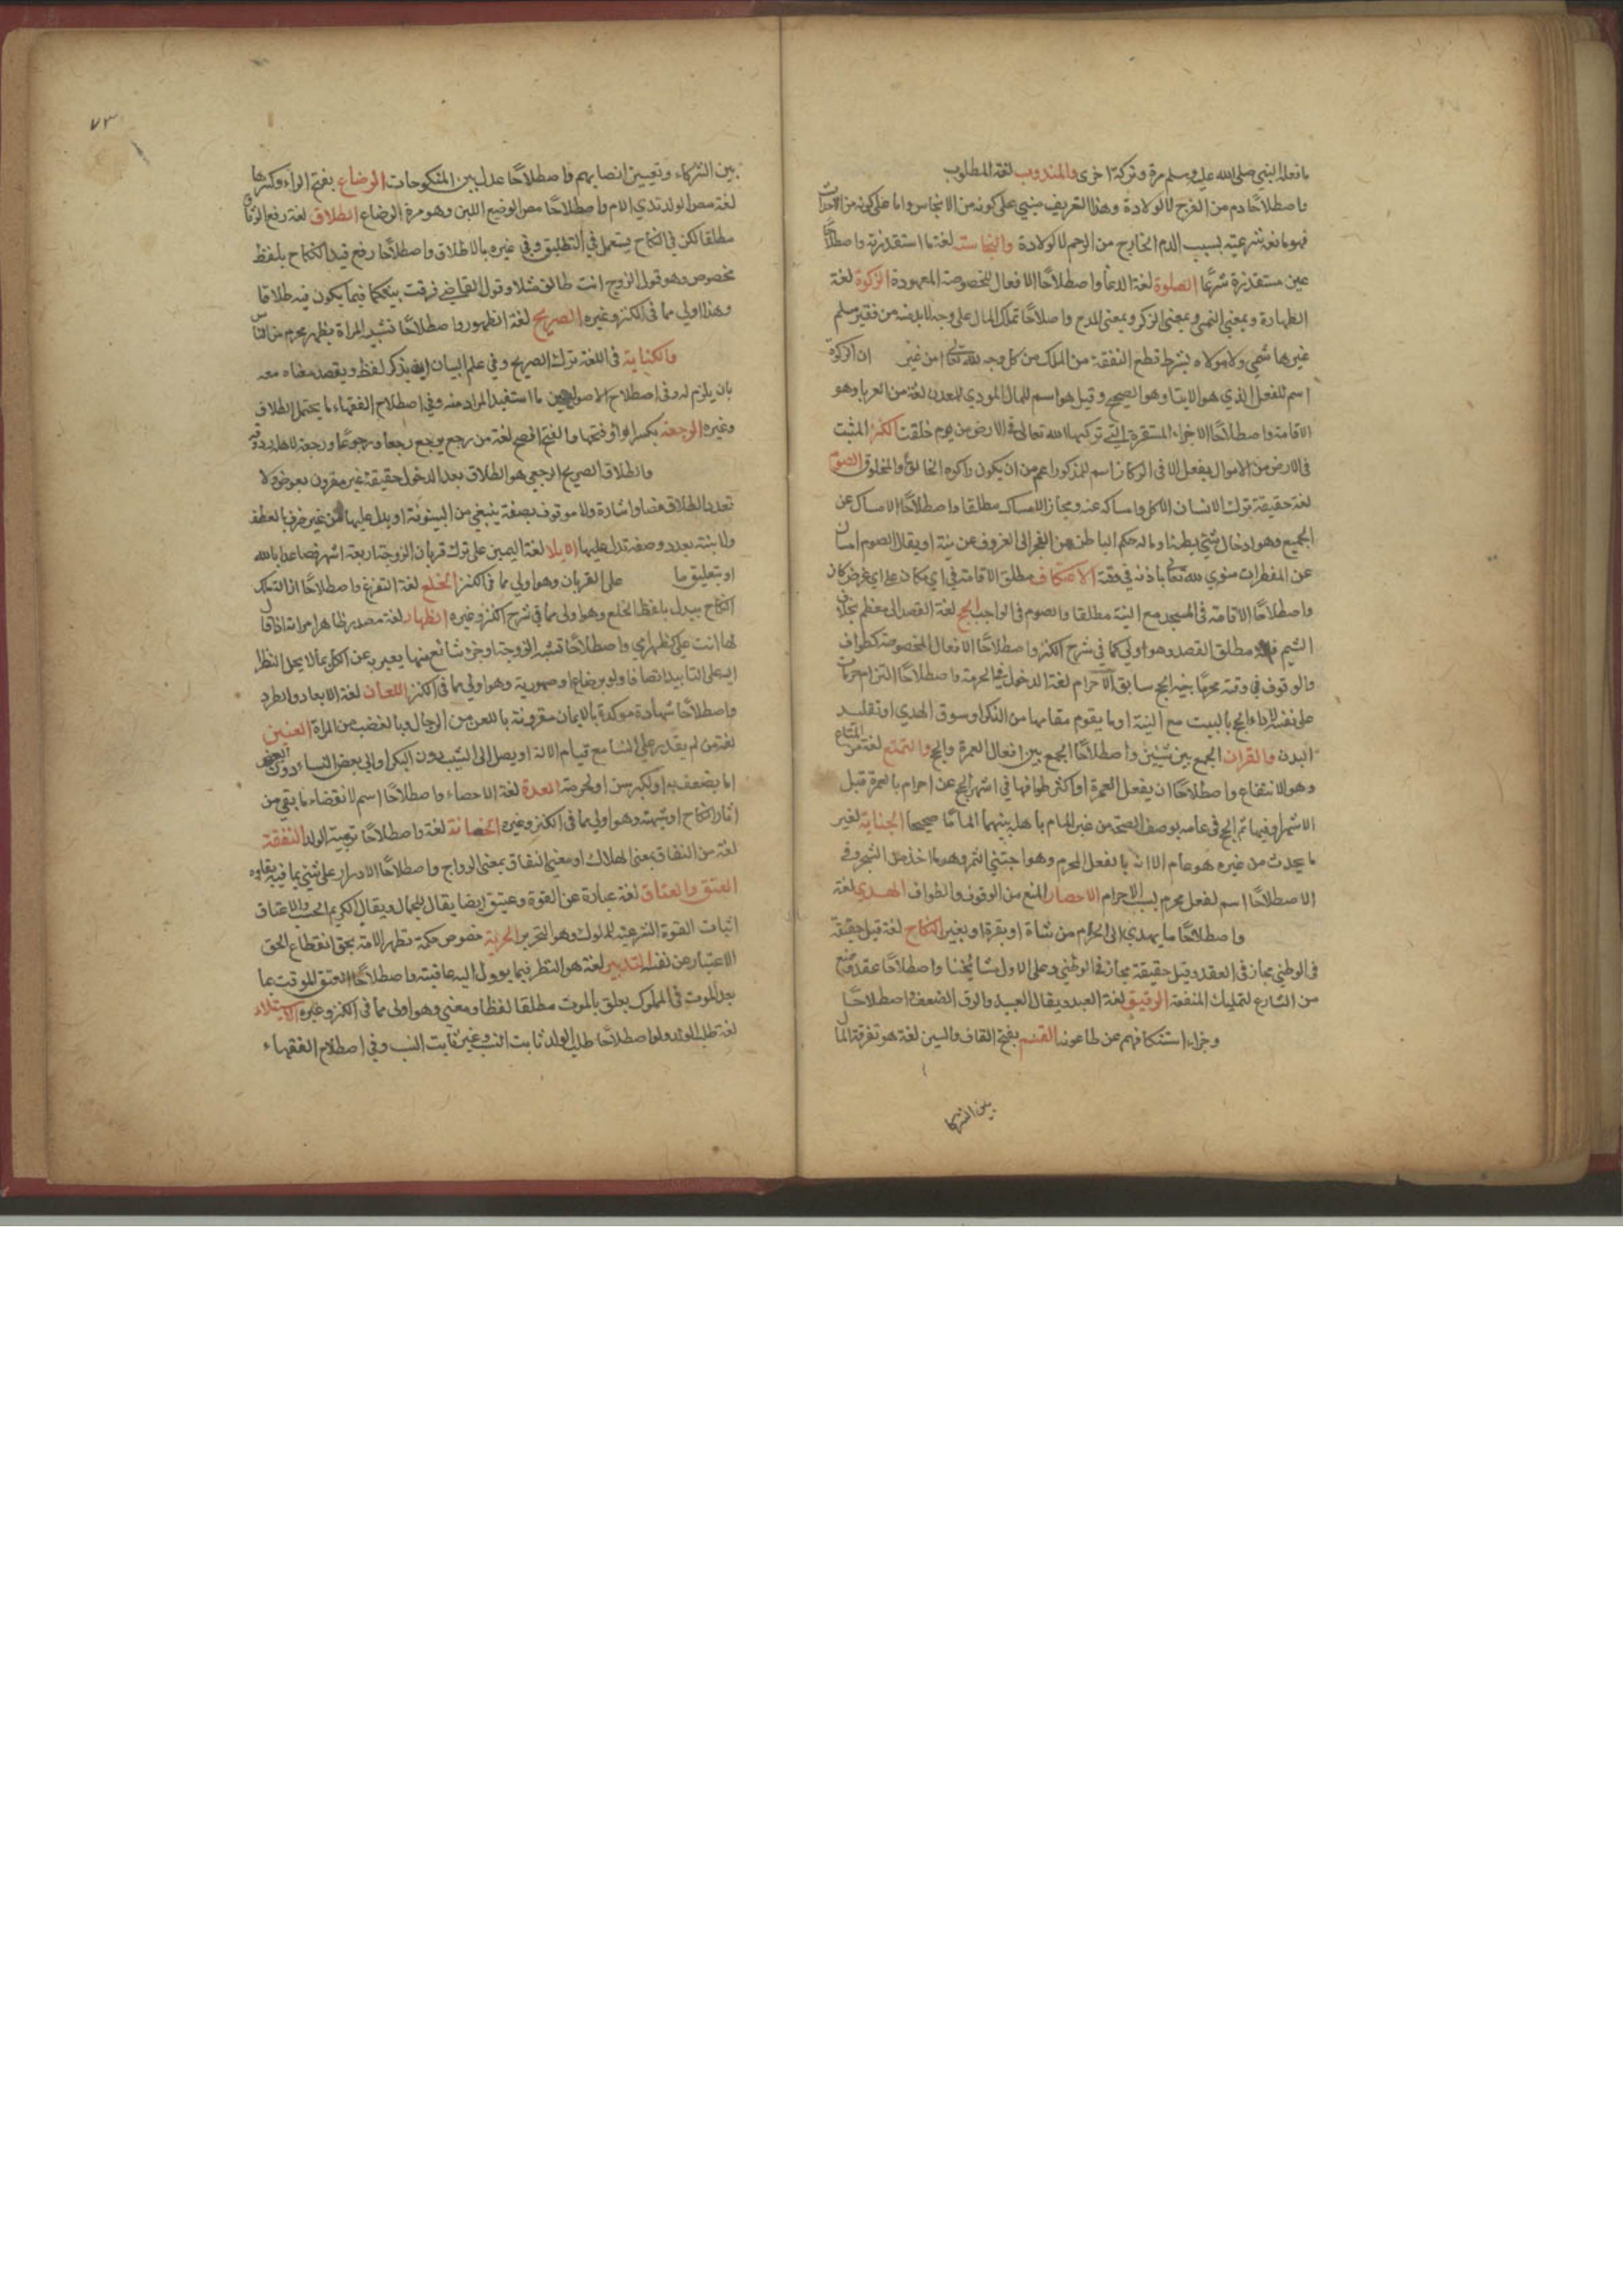 ما فعله النبي صلى الله عليه وسلم مرة وتركه اخرى والمندوب لغة المطلوب
واصطلاحًا دم من الفرج لا لولادة وهذا التعريف مبني على كونه من الانجاس واما على كونه من الاحداث
فهو مانعه شرعيته بسبب الدم الخارج من الرحم لا لولادة والنجاسة لغة ما استقذرته واصطلاحًا
عين مستقذرة شرعًا الصلوة لغة الدعا واصطلاحًا الافعال المخصوصة المعهودة الزكوة لغة
الطهارة وبمعنى النمى وبمعنى الزكى وبمعنى المدح واصلاحًا تملك المال على وجه لا بد منه من فقير مسلم
غير هاشمي ولا مولاه بشرط قطع النفقة من الملك من كل وجه لله تعالى امن غير ان الزكوة
اسم للفعل الذي هو الايتا وهو الصحيح وقيل هو اسم للمال المودي المعدن لغة من العرباوهو
الاقامة واصطلاحًا الاجزاء المستقرة التي تركبها الله تعالى في الارض من يوم خلقت الكنز المثبت
في الارض من الاموال بفعل الافى الركاز اسم للمذكور اعم من ان يكون راكزه الخالق والمخلوق الصوم
لغة حقيقة ترك الانسان الاكل وامساكه عنه ومجاز الامساك مطلقا واصطلاحًا الامساك عن
الجميع وهو ادخال شئ بطنه اوما له حكم الباطن من الفجر الى الغروف عن نية او يقال الصوم امساك
عن المفطرات منوي لله تعالى باذنه في وقته الاعتكاف مطلق الاقامة في اي مكان على اي غرض كان
واصطلاحًا الاقامة في المسجد مع النية مطلقا والصوم في الواجب الحج لغة القصد الى معظم بخلاف
التيمم فانه مطلق القصد وهو اولى كما في شرح الكنز واصطلاحًا الافعال المخصوصة كطواف
والوقوف في وقته محرمًا بنية الحج سابق الاحرام لغة الدخول في الحرمة واصطلاحًا التزام حرمات
على نفسه لاداء الحج بالبيت مع النية او ما يقوم مقامها من الذكر او سوق الهدي او تقليد
البدن والقران الجمع بين شيئين واصطلاحًا الجمع بين افعال العمرة والحج والتمتع لغة من المتاع
وهو الانتفاع واصطلاحًا ان يفعل العمرة او اكثر طوافها في اشهر الحج عن احرام بالعمرة قبل
الاشهر او فيها ثم الحج في عامه بوصف الصحة من غير المام باهل بينهما الماما صحيحا الجناية لغير
ما يحدث من غيره هو عام الا انه بالفعل المحرم وهو اجتنى الثمر وهو ما اخذ من الشجر وفي
الاصطلاحًا اسم لفعل محرم بسبب الاحرام الاحصار المنع من الوقوف والطواف الهدي لغة
واصطلاحًا ما يهدي الى الحرم من شاة او بقرة او بغير النكاح لغة قيل حقيقة
في الوطئ مجاز في العقد وقيل حقيقة مجاز في الوطئ وعلى الاول مشايخنا واصطلاحًا عقد وضع
من الشارع لتمليك المنفعة الرقيق لغة العبد ويقال العبيد والرق الضعف واصطلاحًا
وجزاء استنكافهم عن طاعونه القسم بفتح القاف والسين لغة هو تفرقة المال
بين الشركا
٧٣
بين الشركاء وتعيين انصابهم واصطلاحًا عدل بين المنكوحات الرضاع بفتح الراء وكسرها
لغة مص الولد ثدي الام واصطلاحًا مص الرضيع اللبن وهو مدة الرضاع الطلاق لغة رفع الوثاق
مطلقا لكن في النكاح يستعمل في التطليق وفي غيره بالاطلاق واصطلاحًا رفع قيد النكاح بلفظ
مخصوص وهو قول الزوج انت طالق مثلا وقول القاضي فرقت بينكما فيما يكون فيه طلاقا
وهذا اولى مما في الكنز وغيره الصريح لغة الظهور واصطلاحًا تشبيه المراة بظهر محرم من النساء
والكناية في اللغة ترك الصريح وفي علم البيان ان يذكر لفظ ويقصد معناه معه
بان يلزم له وفي اصطلاح الاصوليين ما استفيد المراد منه وفي اصطلاح الفقهاء ما يحتمل الطلاق
وغيره الرجعة بكسر الراو فتحها والفتح افصح لغة من رجع يرجع رجعا ورجوعا ورجعة
والطلاق الصريح الرجعي هو الطلاق بعد الدخول حقيقة غير مقرون بعوض ولا
تعدد الطلاق نصا واشارة ولا موقوف بصفة ينبغي من البينونة او يدل عليها من غير حرف العطف
ولا بنية بعدد وصفة تدل عليها الايلا لغة اليمين على ترك قربان الزوجة اربعة اشهر فصاعدا بالله
او بتعليق ما على القربان وهو اولى مما في الكنز الخلع لغة التفرغ واصطلاحًا ازالة ملك
النكاح ببدل بلفظ الخلع وهو اولى مما في شرح الكنز وغيره الظهار لغة مصدر ظاهر امراته اذا قال
لها انت علي كظهر امي واصطلاحًا تشبيه الزوجة او جزء شائع منها يعبر به عن الكل بما لا يحل النظر
اليه على التابيد اتصافا ولو برضاع او صهورية وهو اولى مما في الكنز اللعان لغة الابعاد والطرد
واصطلاحًا شهادة موكدة بالايمان مقرونة باللعن من الرجال وبالغضب من المراة العنين
لغة من لم يقدر على النسا مع قيام الالة او يصل الى الثيب دون البكر او الى بعض النساء دون البعض
اما بضعف به او لكبر سن او لحرمة العدة لغة الاحصاء واصطلاحًا اسم لانقضاء ما بقي من
اثار النكاح او شبهته وهو اولى مما في الكنز وغيره الحضانة لغة واصطلاحًا تربية الولد النفقة
لغة من النفاق بمعنى الهلاك او معنى النفاق بمعنى الرواج واصطلاحًا الادرار على شئ بما فيه بقاؤه
العتق والعتاق لغة عبادة عن القوة وعتيق ايضا يقال للجمال ويقال الكريم الحسب والاعتاق
اثبات القوة الشرعية للملوك وهو التحرير الحرية خصوص حكمة تظهر الامة بحق انقطاع الحق
الاعتبار عن نفسه التدبير لغة هو النظر فيما يوول اليه عاقبته واصطلاحًا العتق الموقت بما
بعد الموت في المملوك يعلق بالموت مطلقا لفظا ومعنى وهو اولى مما في الكنز وغيره الاستيلاء
لغة طلب الولد واصطلاحًا طلب الولد ثابت النسب وغير ثابت النسب وفي اصطلام الفقهاء